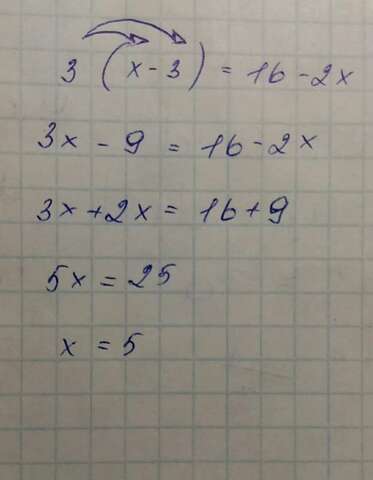 3 (x - 3) = 16 - 2x
3x - 9 = 16 - 2x
3x + 2x = 16 + 9
5x = 25
x = 5